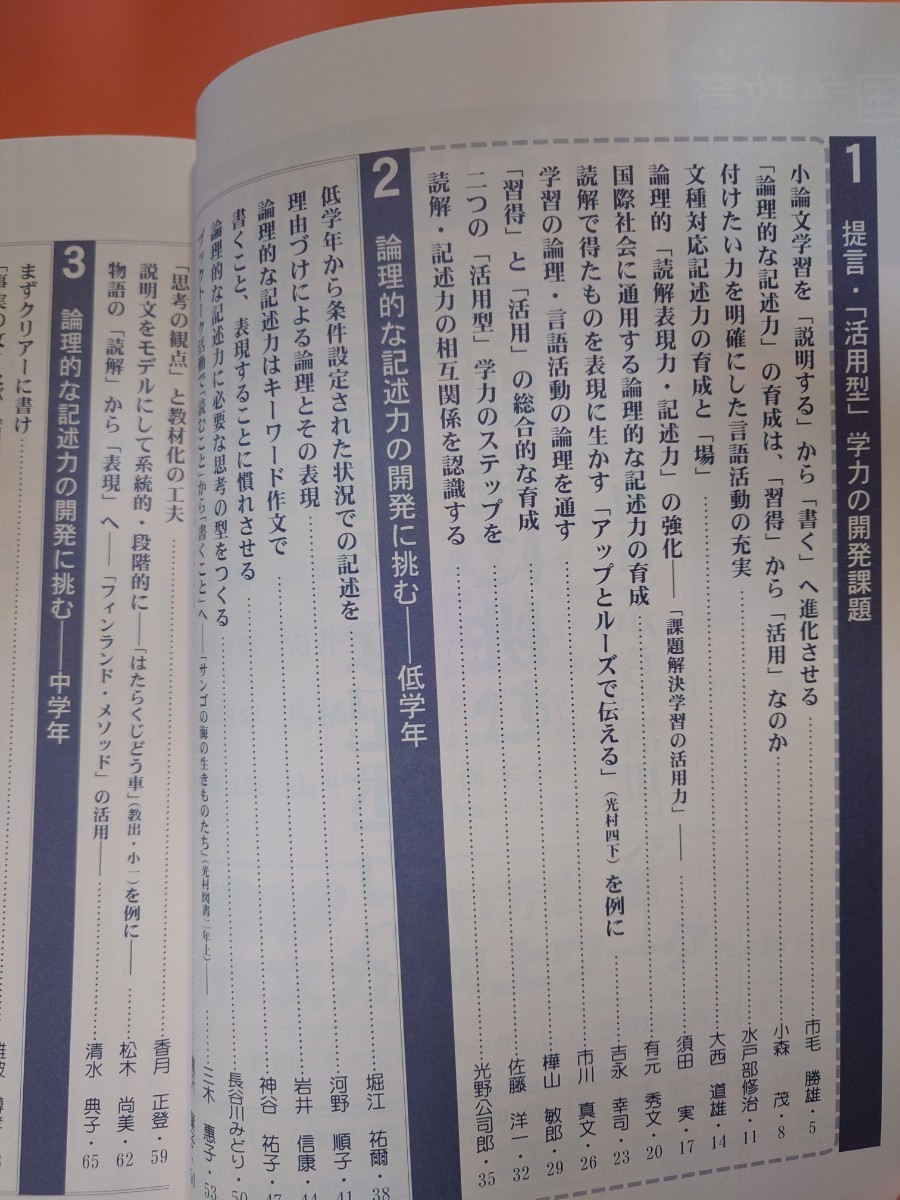 1 提言・「活用型」学力の開発課題
小論文学習を「説明する」から「書く」へ進化させる……市毛 勝雄・5
「論理的な記述力」の育成は、「習得」から「活用」なのか……小森 茂・8
付けたい力を明確にした言語活動の充実……水戸部修治・11
文種対応記述力の育成と「場」……大西 道雄・14
論理的「読解表現力・記述力」の強化――「課題解決学習の活用力」――……須田 実・17
国際社会に通用する論理的な記述力の育成……有元 秀文・20
読解で得たものを表現に生かす「アップとルーズで伝える」(光村四下)を例に……吉永 幸司・23
学習の論理・言語活動の論理を通す……市川 真文・26
「習得」と「活用」の総合的な育成……樺山 敏郎・29
二つの「活用型」学力のステップを……佐藤 洋一・32
読解・記述力の相互関係を認識する……光野公司郎・35
2 論理的な記述力の開発に挑む――低学年
低学年から条件設定された状況での記述を……堀江 祐爾・38
理由づけによる論理とその表現……河野 順子・41
論理的な記述力はキーワード作文で……岩井 信康・44
書くこと、表現することに慣れさせる……神谷 祐子・47
論理的な記述力に必要な思考の型をつくる……長谷川みどり・50
ブックトーク活動で「読むこと」から「書くこと」へ――「サンゴの海の生きものたち」(光村図書二年上)――……三木 惠子・53
「思考の観点」と教材化の工夫……香月 正登・59
説明文をモデルにして系統的・段階的に――「はたらくじどう車」(教出・小一)を例に――……松木 尚美・62
物語の「読解」から「表現」へ――「フィンランド・メソッド」の活用――……清水 典子・65
3 論理的な記述力の開発に挑む――中学年
まずクリアーに書け……